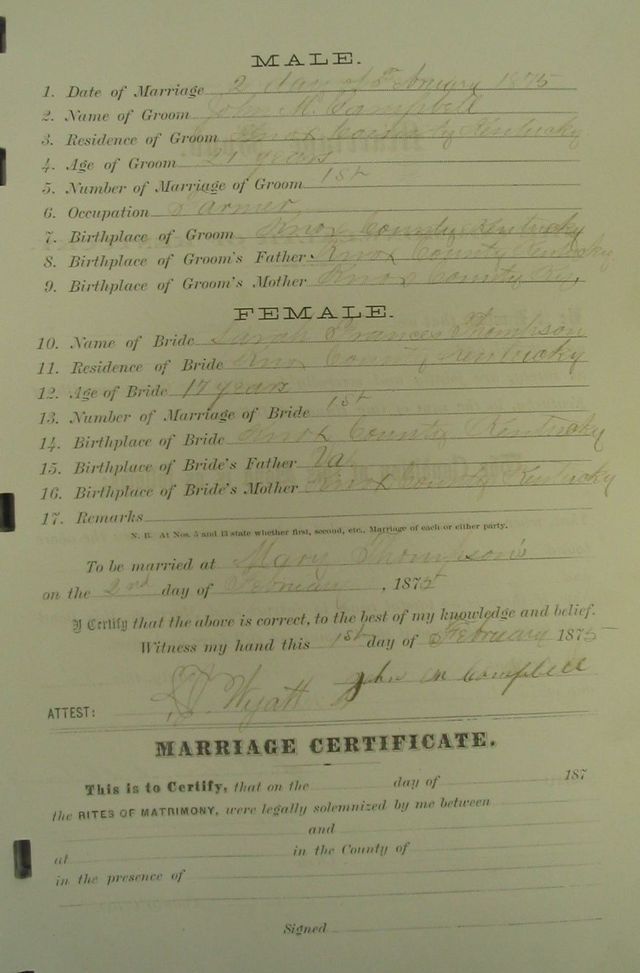 MALE.
1. Date of Marriage 2 day of February 1875
2. Name of Groom John M. Campbell
3. Residence of Groom Knox County Kentucky
4. Age of Groom 21 years
5. Number of Marriage of Groom 1st
6. Occupation Farmer
7. Birthplace of Groom Knox County Kentucky
8. Birthplace of Groom's Father Knox County Kentucky
9. Birthplace of Groom's Mother Knox County Ky,
FEMALE.
10. Name of Bride Sarah Frances Thompson
11. Residence of Bride Knox County Kentucky
12. Age of Bride 17 years
13. Number of Marriage of Bride 1st
14. Birthplace of Bride Knox County Kentucky
15. Birthplace of Bride's Father Va
16. Birthplace of Bride's Mother Knox County Kentucky
17. Remarks
N. B. At Nos. 5 and 13 state whether first, second, etc., Marriage of each or either party.
To be married at Mary Thompson's
on the 2nd day of February, 1875
I Certify that the above is correct, to the best of my knowledge and belief.
Witness my hand this 1st day of February 1875
John M Campbell
ATTEST: Wyatt
MARRIAGE CERTIFICATE.
This is to Certify, that on the day of 187
the RITES OF MATRIMONY, were legally solemnized by me between
and
at in the County of
in the presence of
Signed